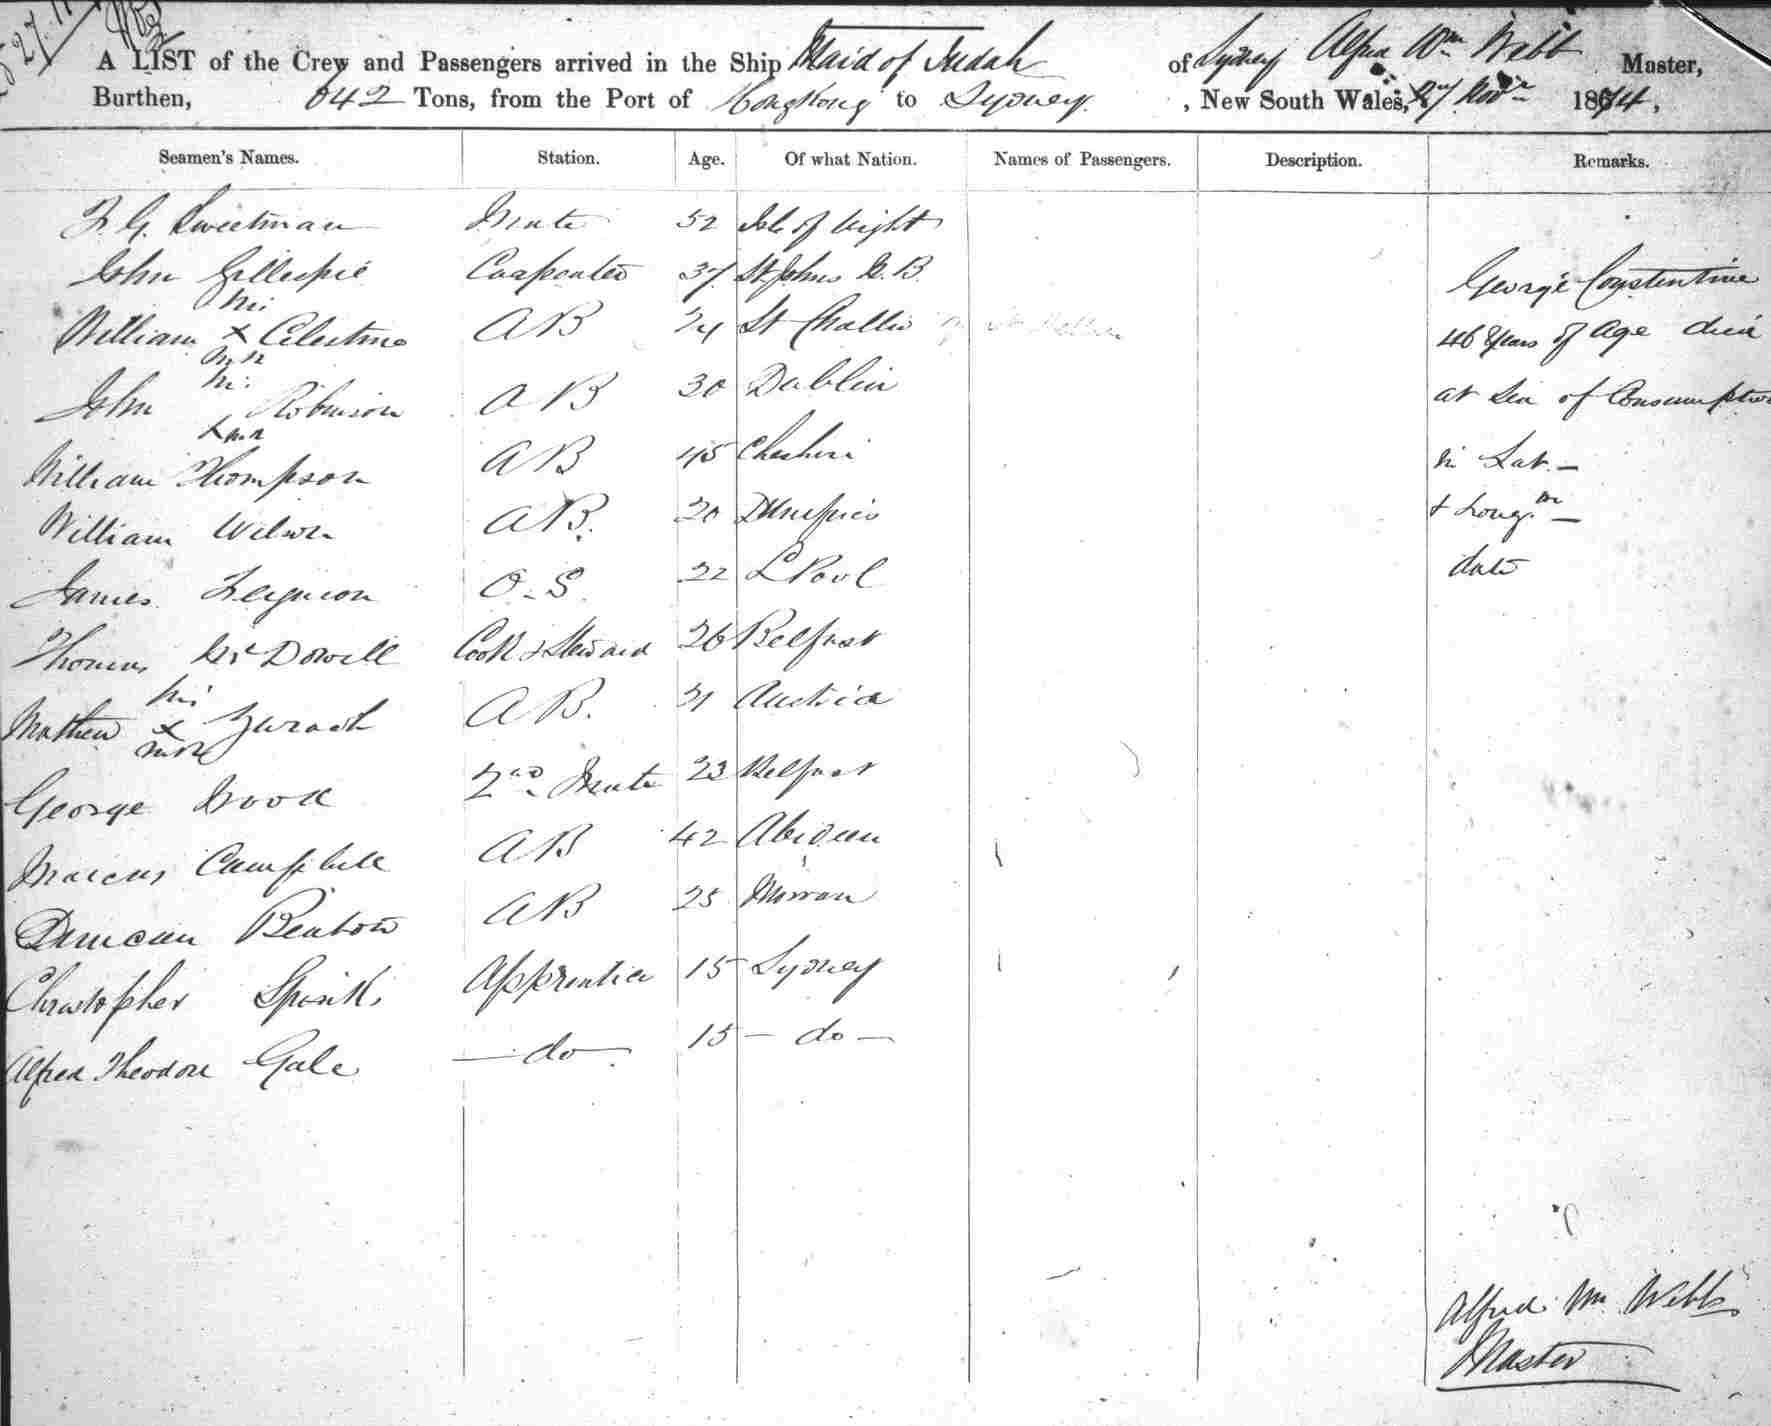 27.11
A LIST of the Crew and Passengers arrived in the Ship Maid of Judah of Sydney Alfred Wm Webb Master,
Burthen, 642 Tons, from the Port of Hongkong to Sydney, New South Wales, 27 Novr 1874,
Seamen's Names. Station. Age. Of what Nation. Names of Passengers. Description. Remarks.
F. G. Sweetman Mate 52 Isle of Wight
John Gillespie Carpenter 37 St Johns N.B. George Constentine
his
William x Celestine AB St 46 Years of Age died
mrk
his
John Robinson AB 30 Dublin at Sea of Consumption
x mrk
William Thompson AB 45 Cheshire in Lat. —
William Wilson AB. 20 & Longi. —
James Ferguson O.S. 22 LPool date
Thomas McDowell Cook & Steward 26 Belfast
his
Mathew x AB. 31 Austria
mrk
George 2nd Mate 23 Belfast
Marcus Campbell AB 42 Abideen
Duncan AB 25
Christopher Spinks Apprentice 15 Sydney
Alfred Theodore Gale — do — 15 — do —
Alfred Wm Webb
Master